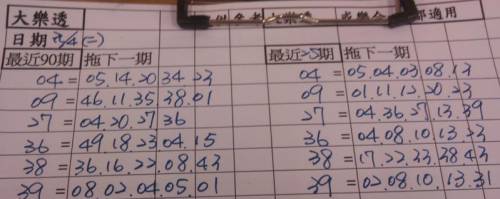 大樂透
日期 3/4(二)
最近90期 拖下一期
04 = 05.14.20.34.23
09 = 46.11.35.38.01
27 = 04.20.27.36
36 = 49.18.23.04.15
38 = 36.16.22.08.43
39 = 08.02.04.05.01
適用
最近25期 拖下一期
04 = 05.04.03.08.13
09 = 01.11.12.20.23
27 = 04.36.27.13.39
36 = 04.08.10.13.23
38 = 17.22.33.38.43
39 = 02.08.10.13.31